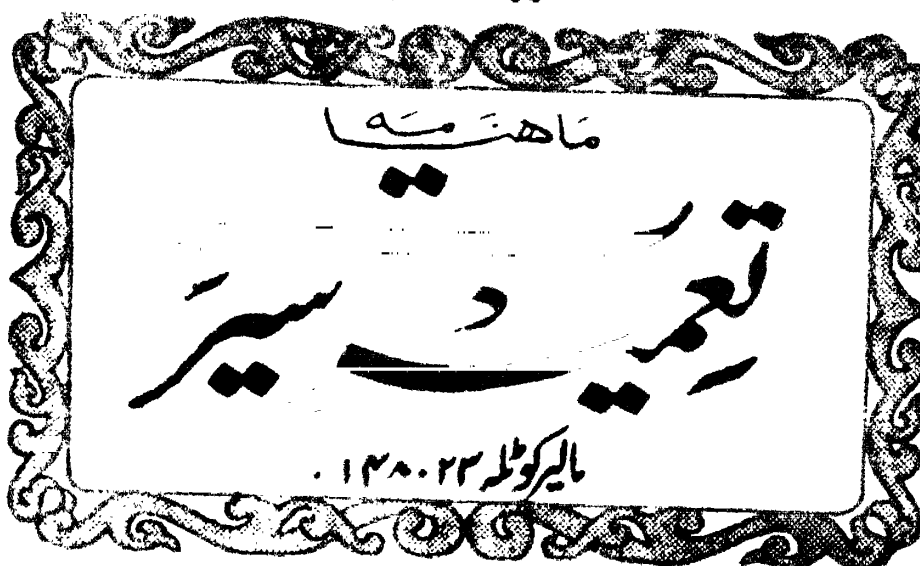 ماهنامه
تعمیرِ سیرَت
مالیرکوٹلہ ۱۴۸۰۲۳